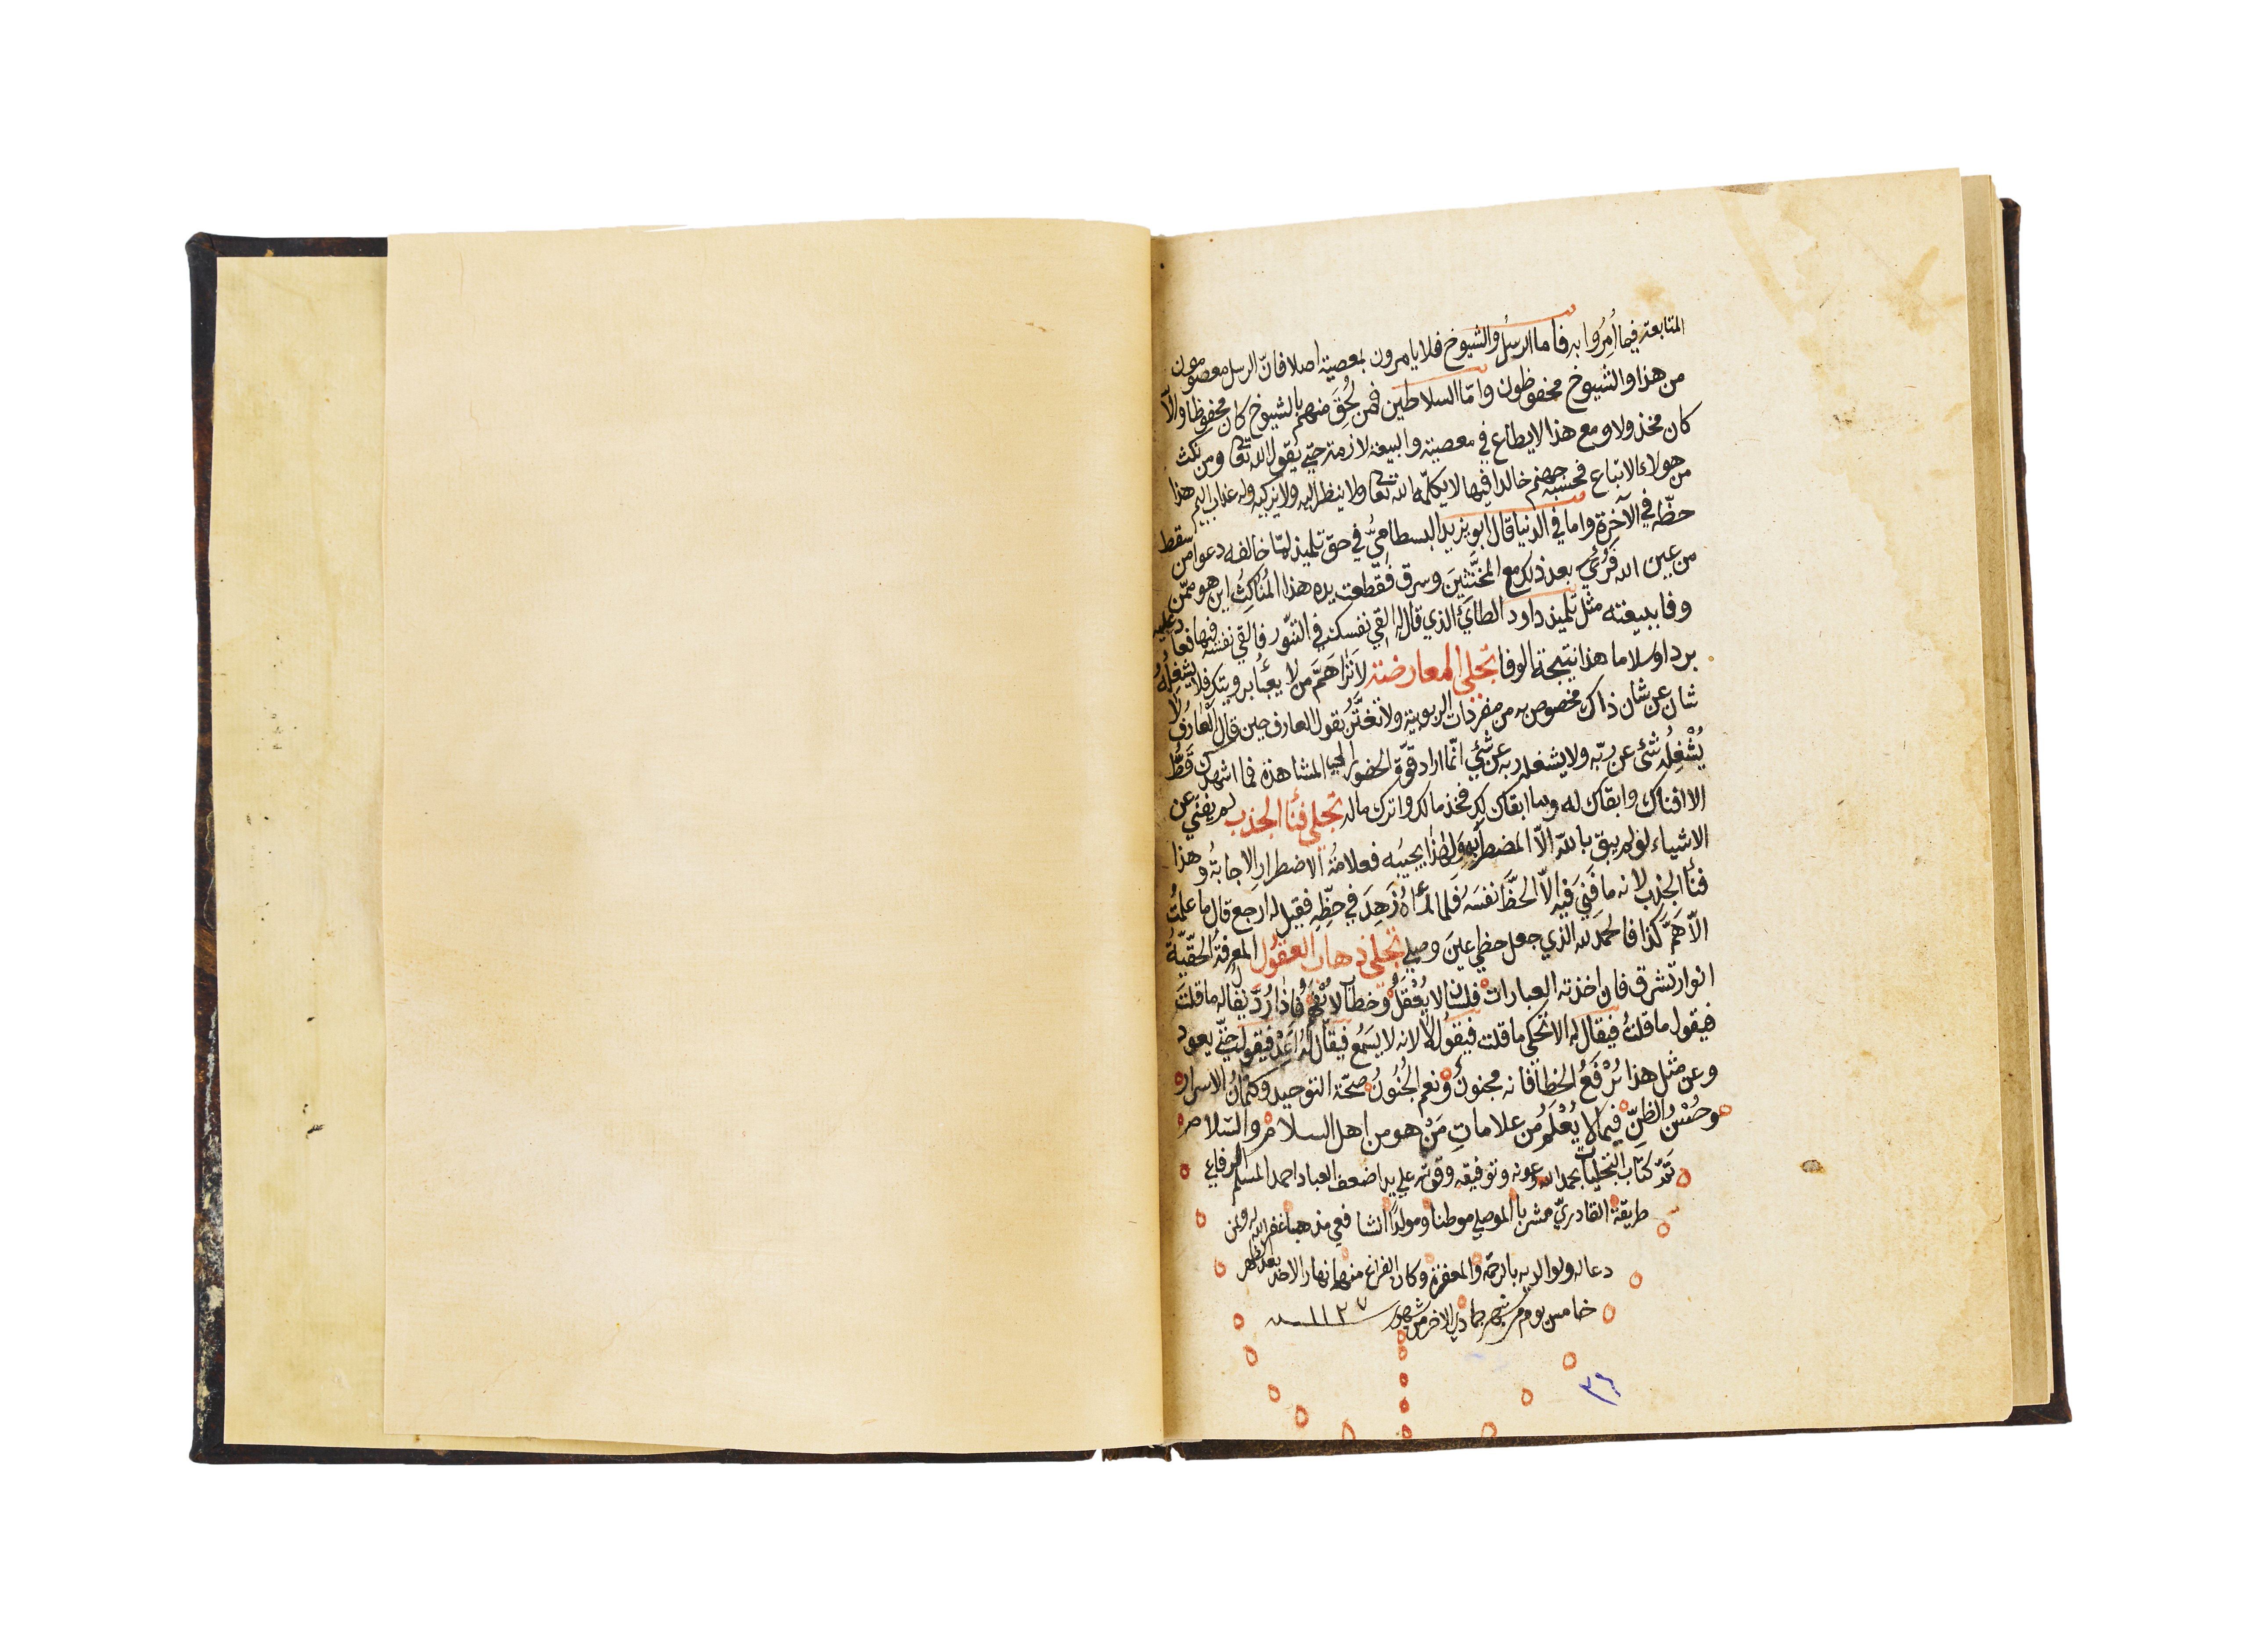 المتابعة فيما أُمِرُوا به فاما الرسل والشيوخ فلا يامرون بمعصية اصلا فانّ الرسل معصومون
من هذا والشيوخ محفوظون وامّا السلاطين فمن لَحِقَ منهم بالشيوخ كان محفوظا والّا
كان مخذولا ومع هذا لا يطاع في معصية والبيعة لازمة حتى يقول الله تعالى ومن نكث
من هولاء الاتباع فحسبه جهنم خالدا فيها لا يكلّمه الله تعالى ولا ينظر اليه ولا يزكيه وله عذاب اليم هذا
حظّه في الآخرة واما في الدنيا قال ابو يزيد البسطاميّ في حق تلميذه لمّا خالفه دعوا من سقط
من عين الله فَرُئِيَ بعد ذلك مع المخنَّثينَ وسرق فقُطّعت يده هذا لمّا نكث اين هو ممّن
وفا ببيعته مثل تلميذ داود الطائي الذي قال له القي نفسك في التنّور فالقي نفسه فيها فعاد عليه
بردا وسلاما هذا نتيجة الوفا تجلي المعارضة
شان عن شان ذاك مخصوص به من مفردات الربوبية ولا تغترّ بقول العارف حين قال العارف لا
يُشْغِلُه شئ عن ربّه ولا يشغله ربه عن شئ انّما اراد قوّة الحضور المشاهدة فما اشهدك قطّ
الا افناك وابقاك له وما ابقاك لك فخذ مالك واترك ماله تجلي فنأ الجذب لم يفنَي عن
الاشياء لو لم يبق بالله الّا المضطر ولهذا يجيبه فعلامة الاضطرار الاجابة وهذا
فنأ الجذب لانه ما فَنِيَ فيه الّا لحظَّ نفسه فلما رأه زَهِدَ في حظِّهِ فقيل له ارجع قال ما علمتُ
الّا هَمّ كذا فالحمد لله الذي جعل حظي عينَ وصلي تجلي ذهاب العقول المعرفة الحقيّة
انوار تشرق فان اخذته العبارات فلسان لا يُعْقَلُ وخطاب لا يُفْهَم فاذا رُدّ يقال له ما قلت
فيقول ما قلتُ فيقال له الا تحكي ما قلت فيقول لا لانه لا يسمع فيقال له اَعِدْ فيقول حتى يعود
وعن مثل هذا يُرْفَعُ الخطاب فانه مجنون ونعم الجُنُونُ صحّة التوحيد وكتمان الاسرار
وحُسْنُ الظنّ فيما لا يُعْلَمُ من علاماتِ مَنْ هو من اهل السلام والسّلام
تمّ كتاب التجليات بحمد الله وعونه وتوفيقه وقوته علي يد اضعف العباد احمد المسلم الرفاعي
طريقة القادريّ مشربا الموصلي موطنا ومولدًا الشافعي مذهبا غفر الله له ولمن
دعا له ولوالديه بالرحمة والمغفرة وكان الفراغ منها نهار الاحد بعد الظهر
خامس يوم من شهر جمادي الاخر من شهور سنة ١١٢٧
٣٩